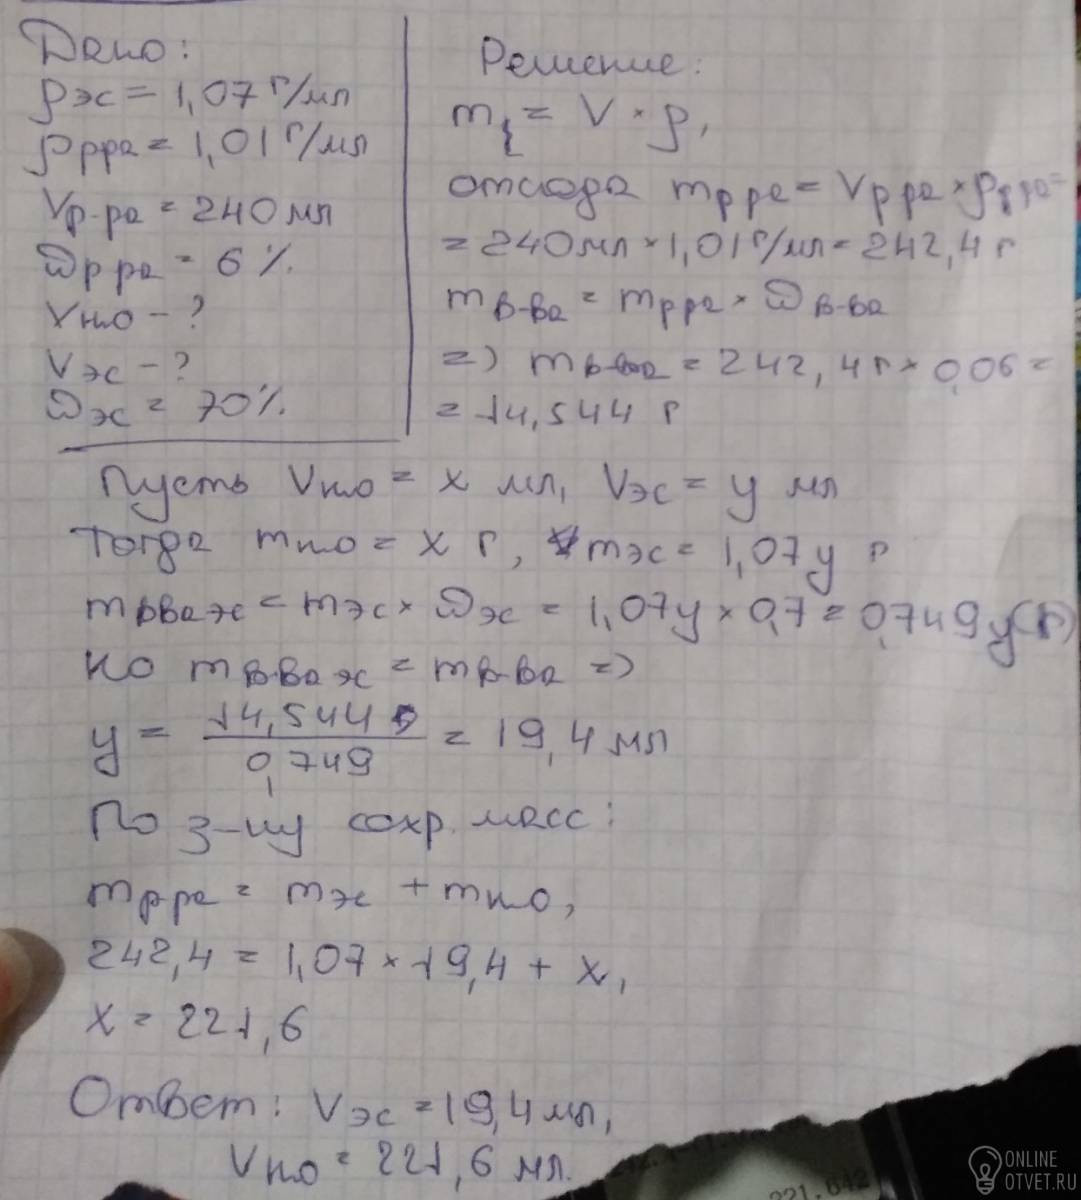 Дано:
ρэс = 1,07 г/мл
ρрра = 1,01 г/мл
Vр-ра = 240 мл
ωрра = 6 %.
Vню - ?
Vэс - ?
ωэс = 70%.
Решение:
m = V × ρ,
отсюда mрра = Vрра × ρрра =
= 240 мл × 1,01 г/мл = 242,4 г
mв-ва = mрра × ωв-ва
=> mв-ва = 242,4 г × 0,06 =
= 14,544 г
Пусть Vню = x мл, Vэс = y мл
Тогда mню = x г, mэс = 1,07y г
mвваэс = mэс × ωэс = 1,07y × 0,7 = 0,749y (г)
Но mв-ваэс = mв-ва =>
y = 14,544 / 0,749 = 19,4 мл
По з-ну сохр. масс:
mрра = mэс + mню,
242,4 = 1,07 × 19,4 + x,
x = 221,6
Ответ: Vэс = 19,4 мл,
Vню = 221,6 мл.
ONLINE
OTVET.RU